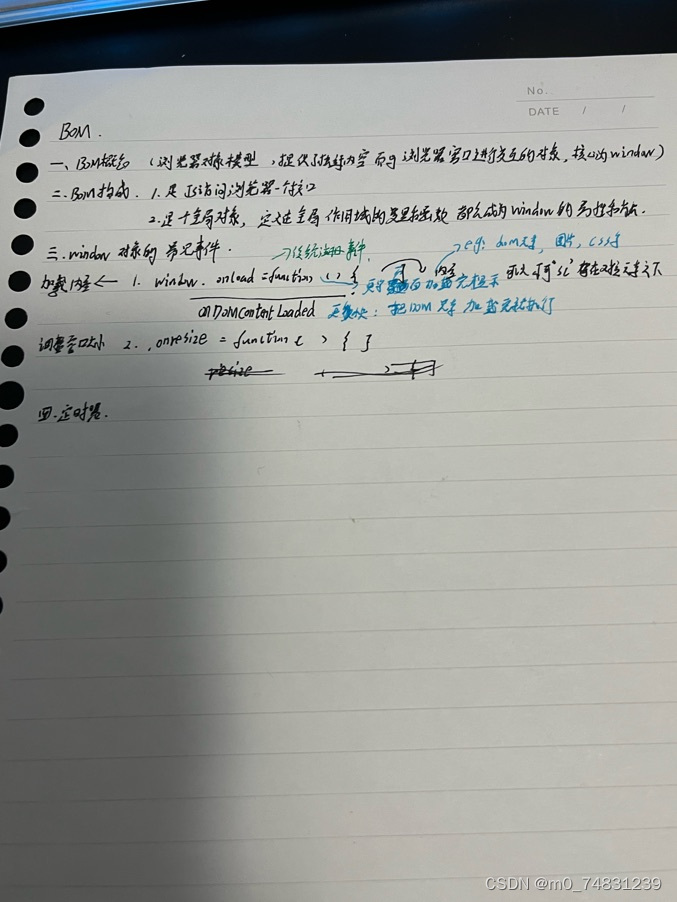 No.
DATE / /
BOM.
一、BOM概念 (浏览器对象模型,提供了独立内容而与浏览器窗口进行交互的对象,核心为window)
二.BOM构成. 1.是JS访问浏览器一个接口
2.是个全局对象,定义在全局作用域的变量和函数都会成为window的属性和方法.
三.window对象的常见事件. →传统注册事件. →eg: dom元素,图片,css等
加载内容← 1. window.onload=function () { 内容 加载完 可以 写在 元素之下
onDOMContentLoaded 更快: 把DOM元素加载完就执行
调整窗口大小 2. .onresize = function ( ) { }
resize
四.定时器.
CSDN @m0_74831239